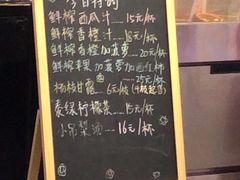 今日特调
鲜榨西瓜汁……15元/杯
鲜榨香橙汁……18元/杯
鲜榨香橙加菠萝……20元/杯
鲜榨苹果加菠萝加西红柿
……25元/杯
杨枝甘露……6元/杯
泰绿柠檬茶……15元/杯
小吊梨汤……16元/杯